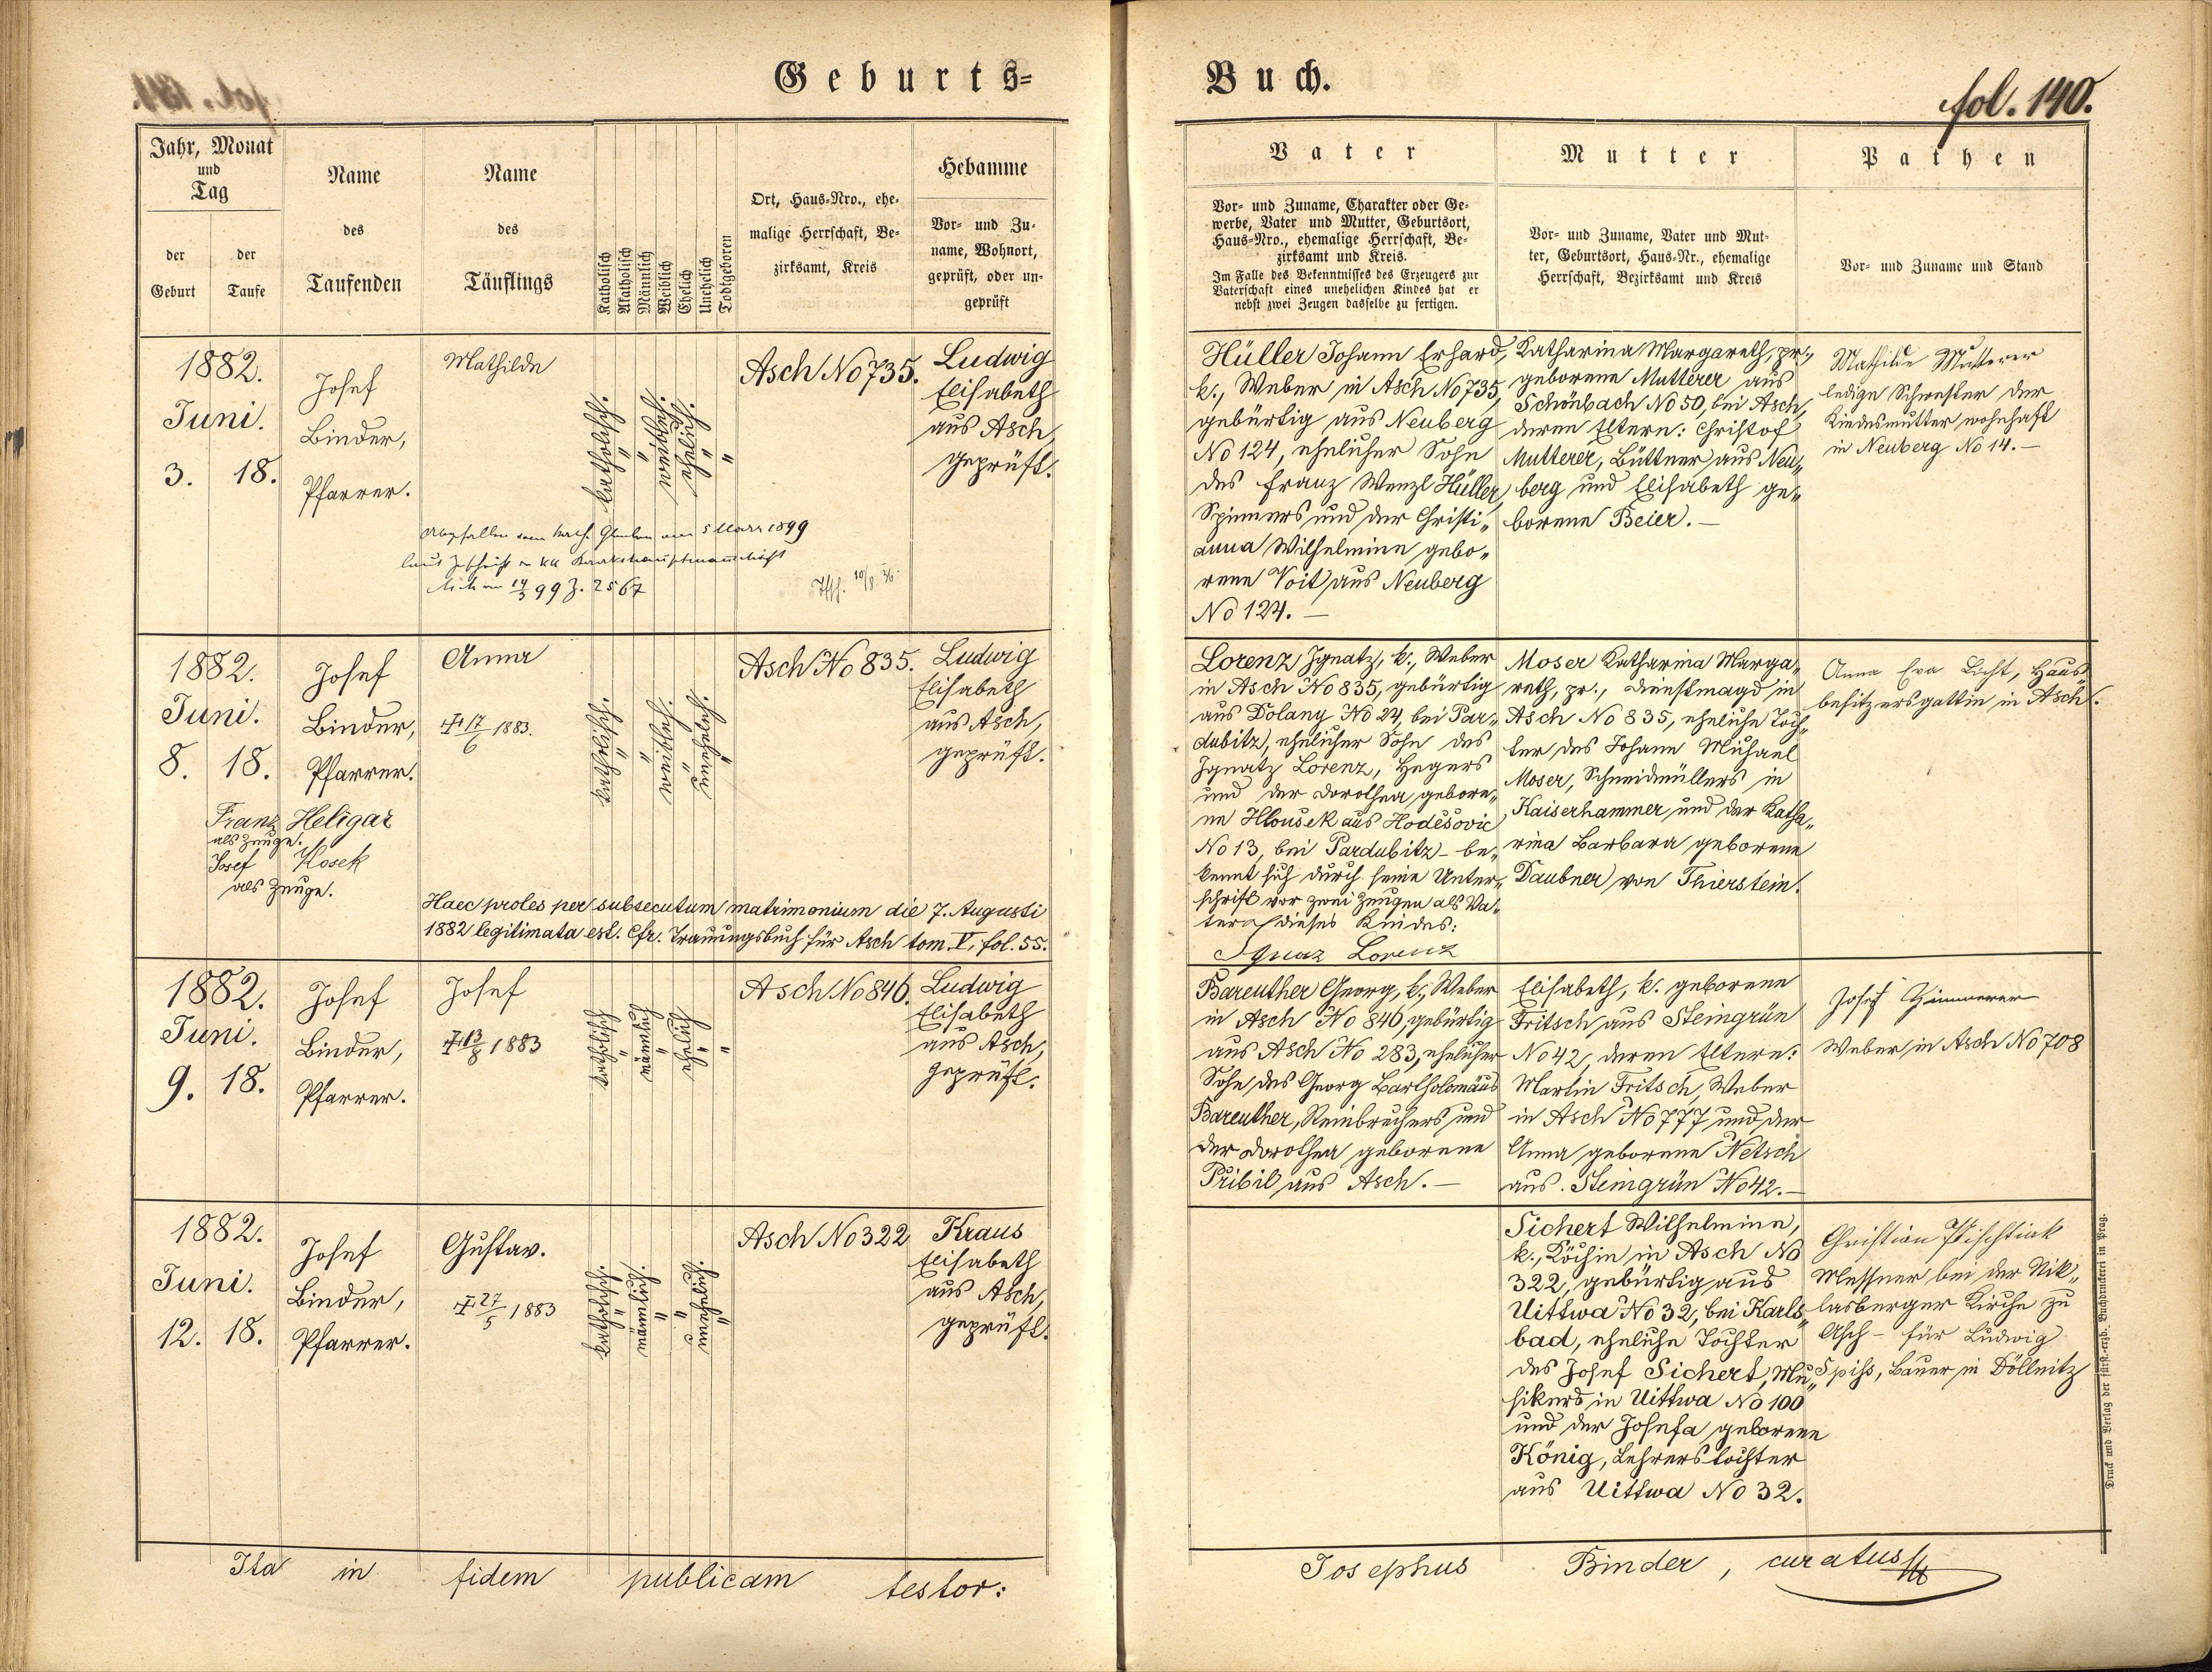 Geburts-
Jahr, Monat
und
Tag
der
Geburt
der
Taufe
Name
des
Taufenden
Name
des
Täuflings
Katholisch
Akatholisch
Männlich
Weiblich
Ehelich
Unehelich
Todtgeboren
Ort, Haus-Nro., ehe-
malige Herrschaft, Be-
zirksamt, Kreis
Hebamme
Vor- und Zu-
name, Wohnort,
geprüft, oder un-
geprüft
1882.
Juni.
3. 18.
Josef
Binder,
Pfarrer.
Mathilde
katholisch.
"
"
weiblich.
ehelich.
"
"
Asch No 735.
Ludwig
Elisabeth
aus Asch,
geprüft.
Abgefallen vom kath. Glauben am 5 März 1899
laut Zuschrift kk Bezirkshauptmannschaft
Asch 14/3 99 Z. 2567
10/8 36
1882.
Juni.
8. 18.
Josef
Binder,
Pfarrer.
Anna
† 17/6 1883.
katholisch.
"
"
weiblich.
"
unehelich.
"
Asch No 835.
Ludwig
Elisabeth
aus Asch,
geprüft.
Franz Heligar
als Zeuge.
Josef Hosek
als Zeuge.
Haec proles per subsecutum matrimonium die 7. Augusti
1882 legitimata est. Cfr. Trauungsbuch für Asch tom. V, fol. 55.
1882.
Juni.
9. 18.
Josef
Binder,
Pfarrer.
Josef
† 13/8 1883
katholisch
"
männlich
"
ehelich
"
"
Asch No 846.
Ludwig
Elisabeth
aus Asch,
geprüft.
1882.
Juni.
12. 18.
Josef
Binder,
Pfarrer.
Gustav.
† 27/5 1883
katholisch.
"
männlich.
"
"
unehelich.
"
Asch No 322
Kraus
Elisabeth
aus Asch,
geprüft.
Ita in fidem publicam testor:
Buch.
fol. 140.
Vater
Vor- und Zuname, Charakter oder Ge-
werbe, Vater und Mutter, Geburtsort,
Haus-Nro., ehemalige Herrschaft, Be-
zirksamt und Kreis.
Im Falle des Bekenntnisses des Erzeugers zur
Vaterschaft eines unehelichen Kindes hat er
nebst zwei Zeugen dasselbe zu fertigen.
Mutter
Vor- und Zuname, Vater und Mut-
ter, Geburtsort, Haus-Nr., ehemalige
Herrschaft, Bezirksamt und Kreis
Pathen
Vor- und Zuname und Stand
Hüller Johann Erhard,
k., Weber in Asch No 735,
gebürtig aus Neuberg
No 124, ehelicher Sohn
des Franz Wenzl Hüller,
Spinners und der Christi„
anna Wilhelmine gebo„
rene Voit aus Neuberg
No 124. —
Katharina Margareth, pr.,
geborene Mutterer aus
Schönbach No 50, bei Asch,
deren Eltern: Christof
Mutterer, Büttner aus Neu„
berg und Elisabeth ge„
borene Beier. —
Mathilde Mutterer
ledige Schwester der
Kindesmutter, wohnhaft
in Neuberg No 14. —
Lorenz Ignatz, k., Weber
in Asch No 835, gebürtig
aus Dolany No 24, bei Par„
dubitz, ehelicher Sohn des
Ignatz Lorenz, Hegers
und der Dorothea gebore„
ne Hloušek aus Hoděšovic
No 13, bei Pardubitz - be„
kennt sich durch seine Unter„
schrift vor zwei Zeugen als Va„
ter dieses Kindes:
Ignaz Lorenz
Moser Katharina Marga„
reth, pr., Dienstmagd in
Asch No 835, eheliche Toch„
ter des Johann Michael
Moser, Schneidmüllers in
Kaiserhammer und der Katha„
rina Barbara geborene
Daubner von Thierstein.
Anna Eva Licht, Haus„
besitzersgattin in Asch.
Bareuther Georg, k., Weber
in Asch No 846, gebürtig
aus Asch No 283, ehelicher
Sohn des Georg Bartholomäus
Bareuther, Steinbrechers und
der Dorothea geborene
Přibil aus Asch. —
Elisabeth, k. geborene
Fritsch aus Steingrün
No 42, deren Eltern:
Martin Fritsch, Weber
in Asch No 777 und der
Anna geborene Netsch
aus Steingrün No 42. —
Josef
Weber in Asch No 708
Sichert Wilhelmine,
k., Köchin in Asch No
322, gebürtig aus
Uittwa No 32, bei Karls„
bad, eheliche Tochter
des Josef Sichert, Mu„
sikers in Uittwa No 100
und der Josefa geborene
König, Lehrerstochter
aus Uittwa No 32.
Christian
Messner bei der Nik„
lasberger Kirche zu
Asch - für Ludwig
Spiss, Bauer in Döllnitz
Druck und Verlag der fürst.-erzb. Buchdruckerei in Prag.
Josephus Binder, curatus